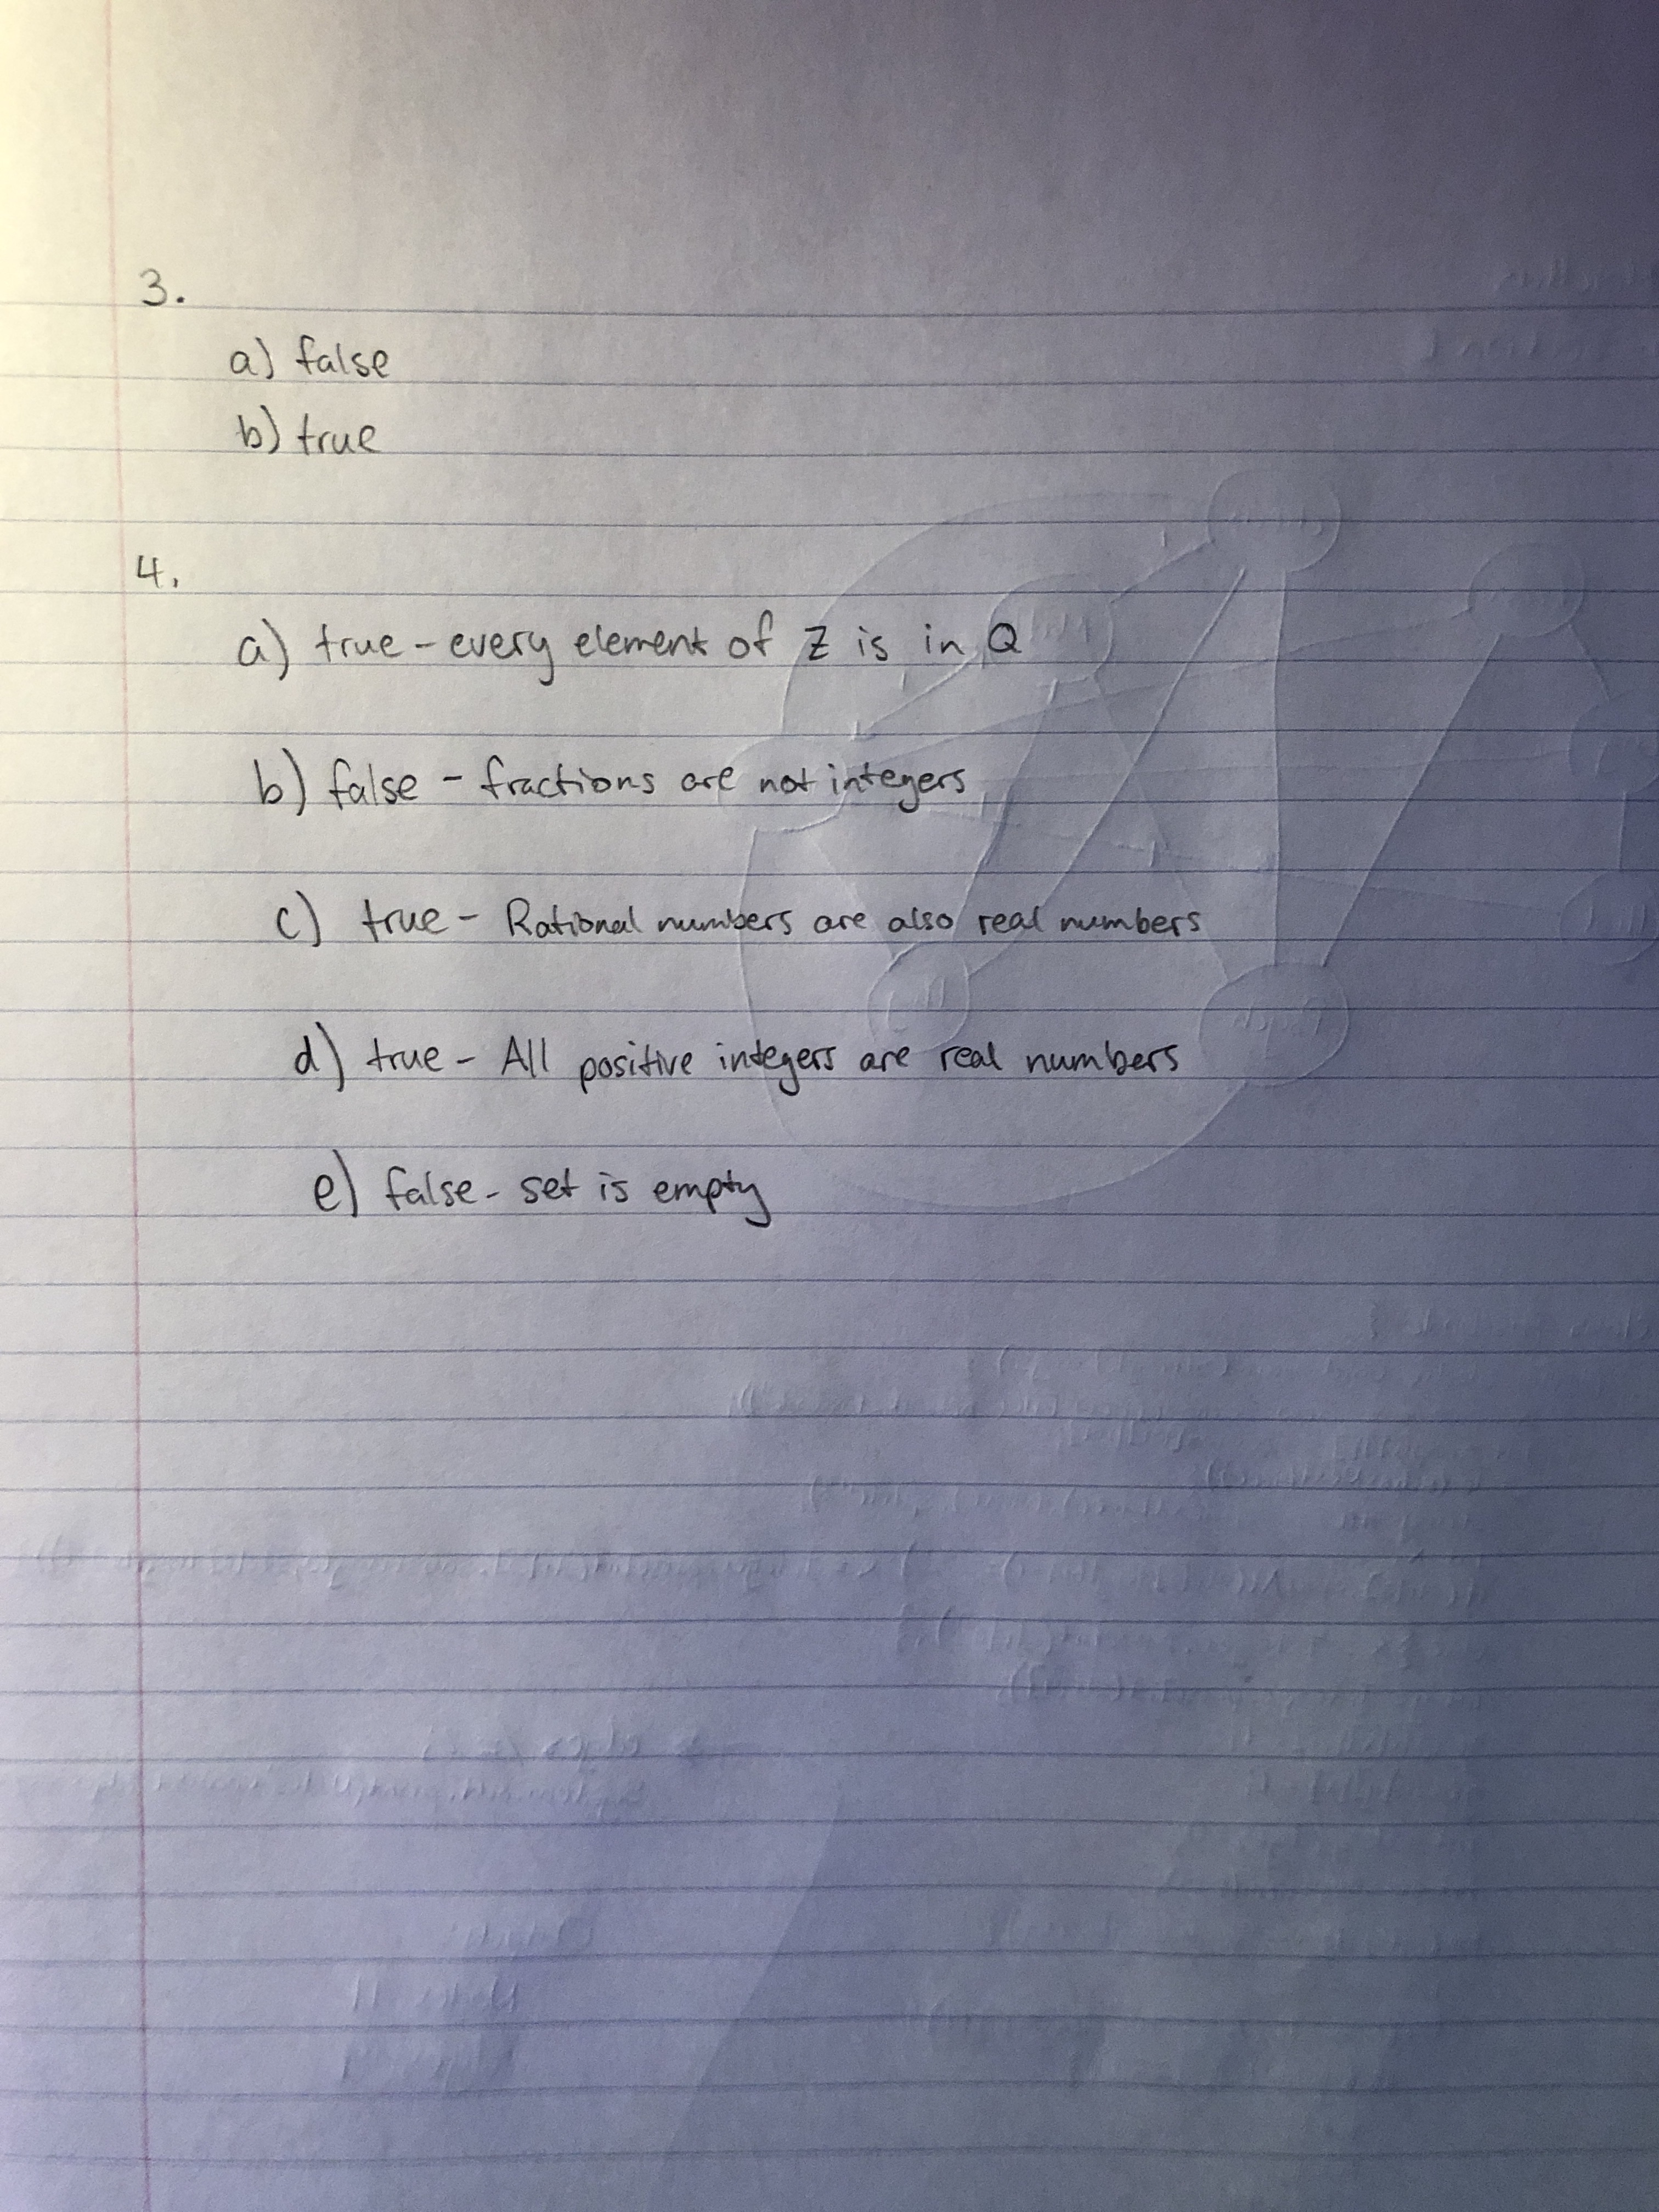 3.
a) false
b) true
4.
a) true - every element of Z is in Q
b) false - fractions are not integers
c) true - Rational numbers are also real numbers
d) true - All positive integers are real numbers
e) false - set is empty